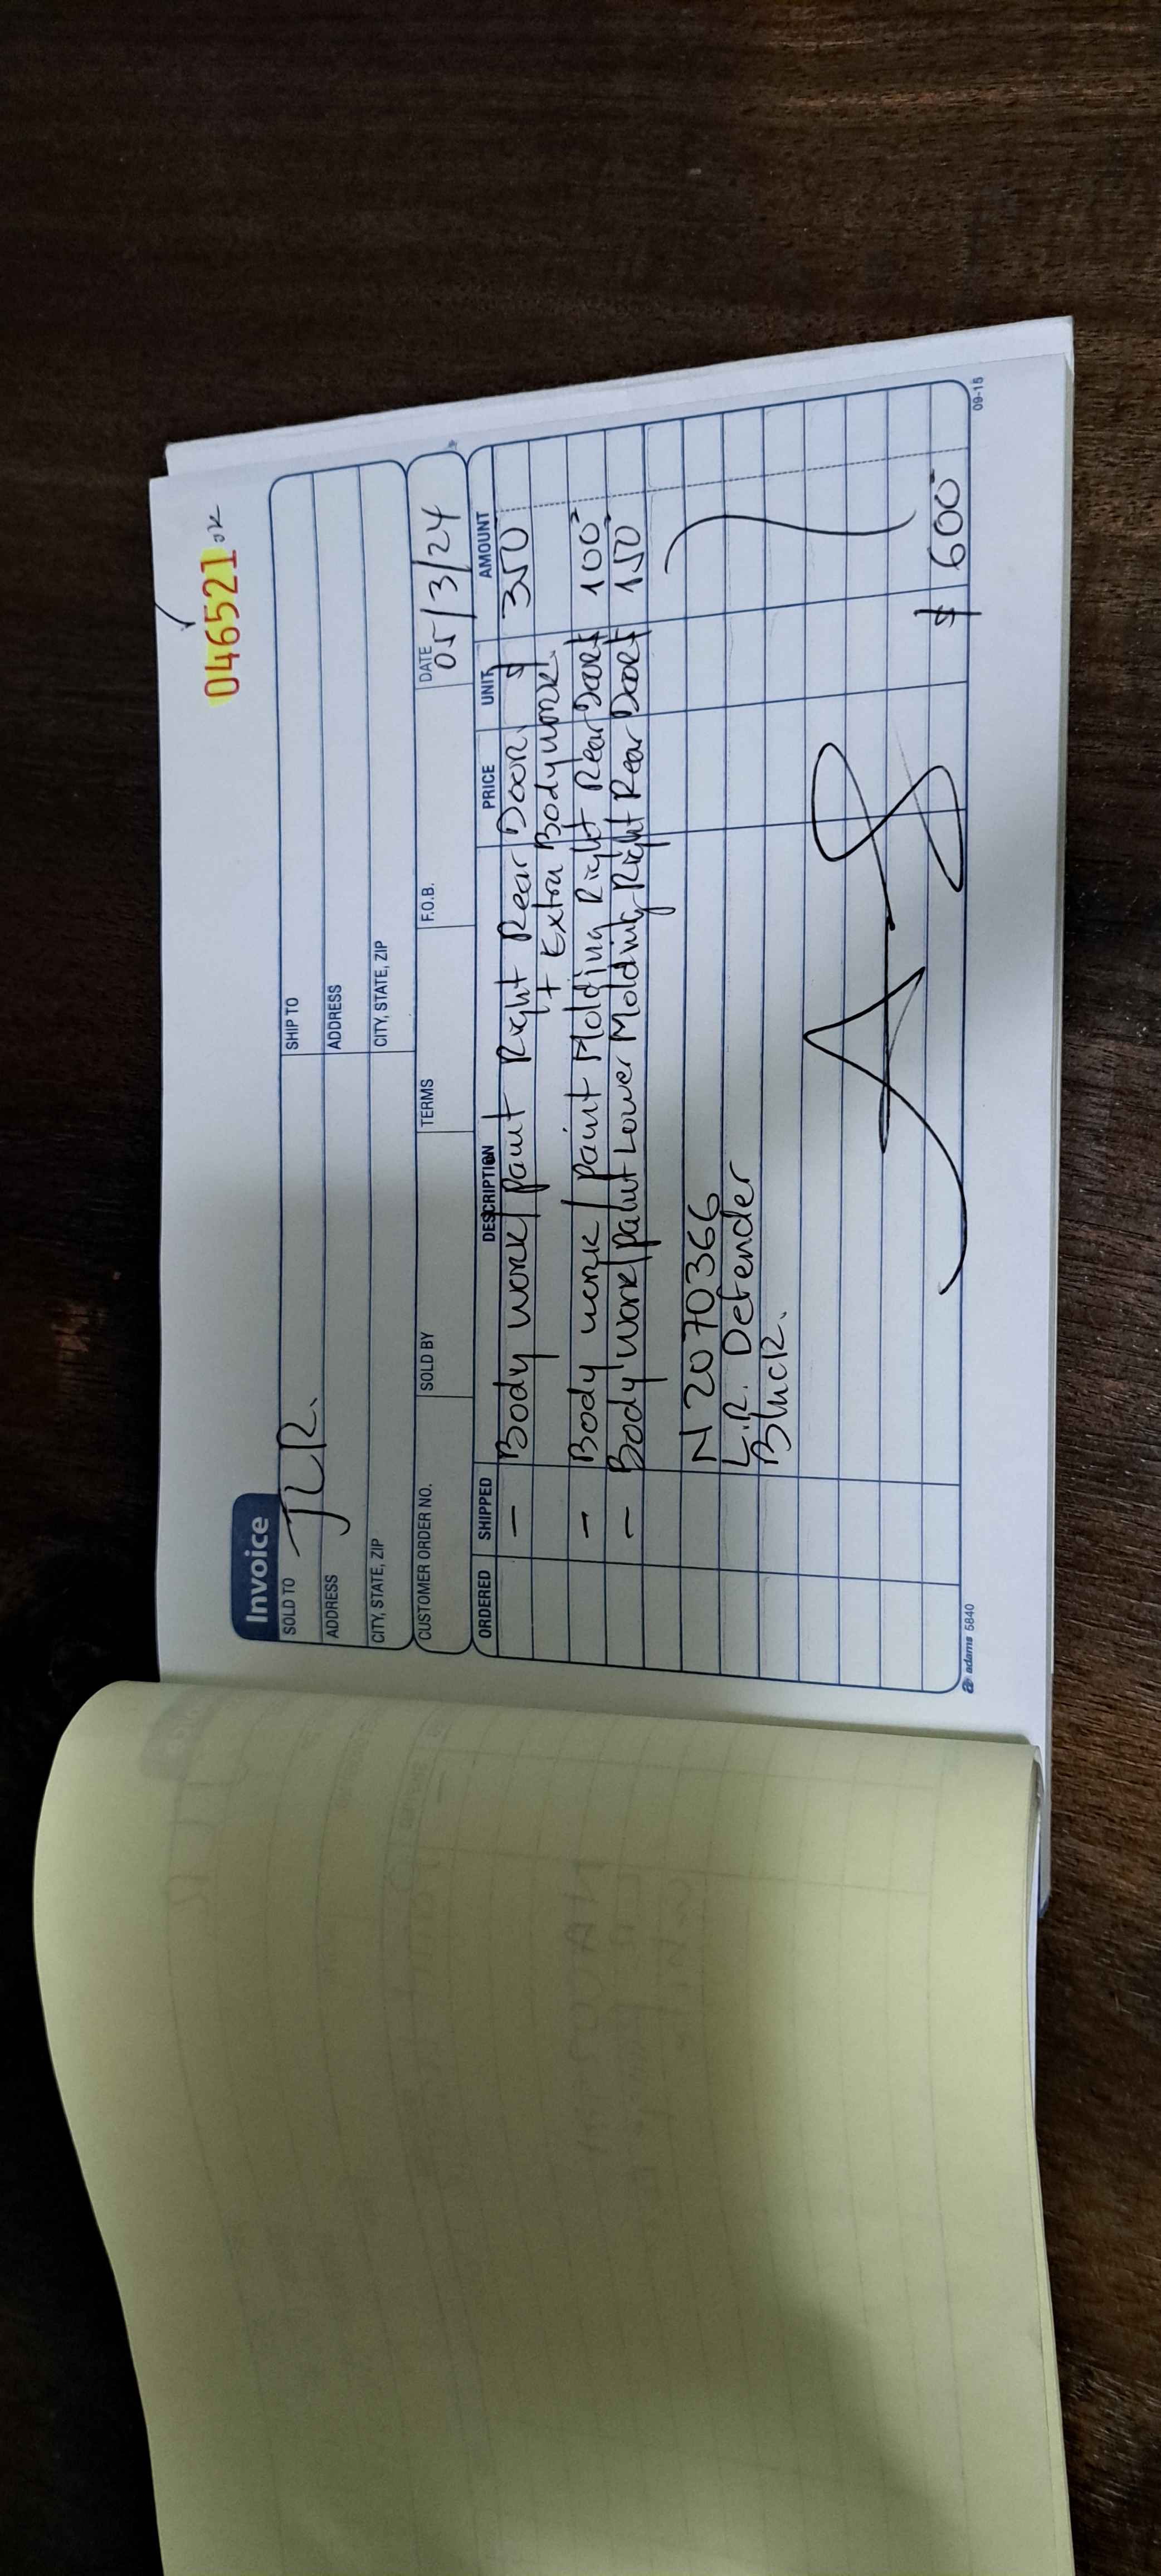 046521 OK
Invoice
SOLD TO JLR. SHIP TO
ADDRESS ADDRESS
CITY, STATE, ZIP CITY, STATE, ZIP
CUSTOMER ORDER NO. SOLD BY TERMS F.O.B. DATE 05/3/24
ORDERED SHIPPED DESCRIPTION PRICE UNIT AMOUNT
- Body work/paint Right Rear Door. $ 350
+ Extra Bodywork.
- Body work/paint Molding Right Rear Door $ 100
- Body work/paint Lower Molding Right Rear Door $ 150
N2070366
L.R. Defender
Black.
$ 600
adams 5840 09-15